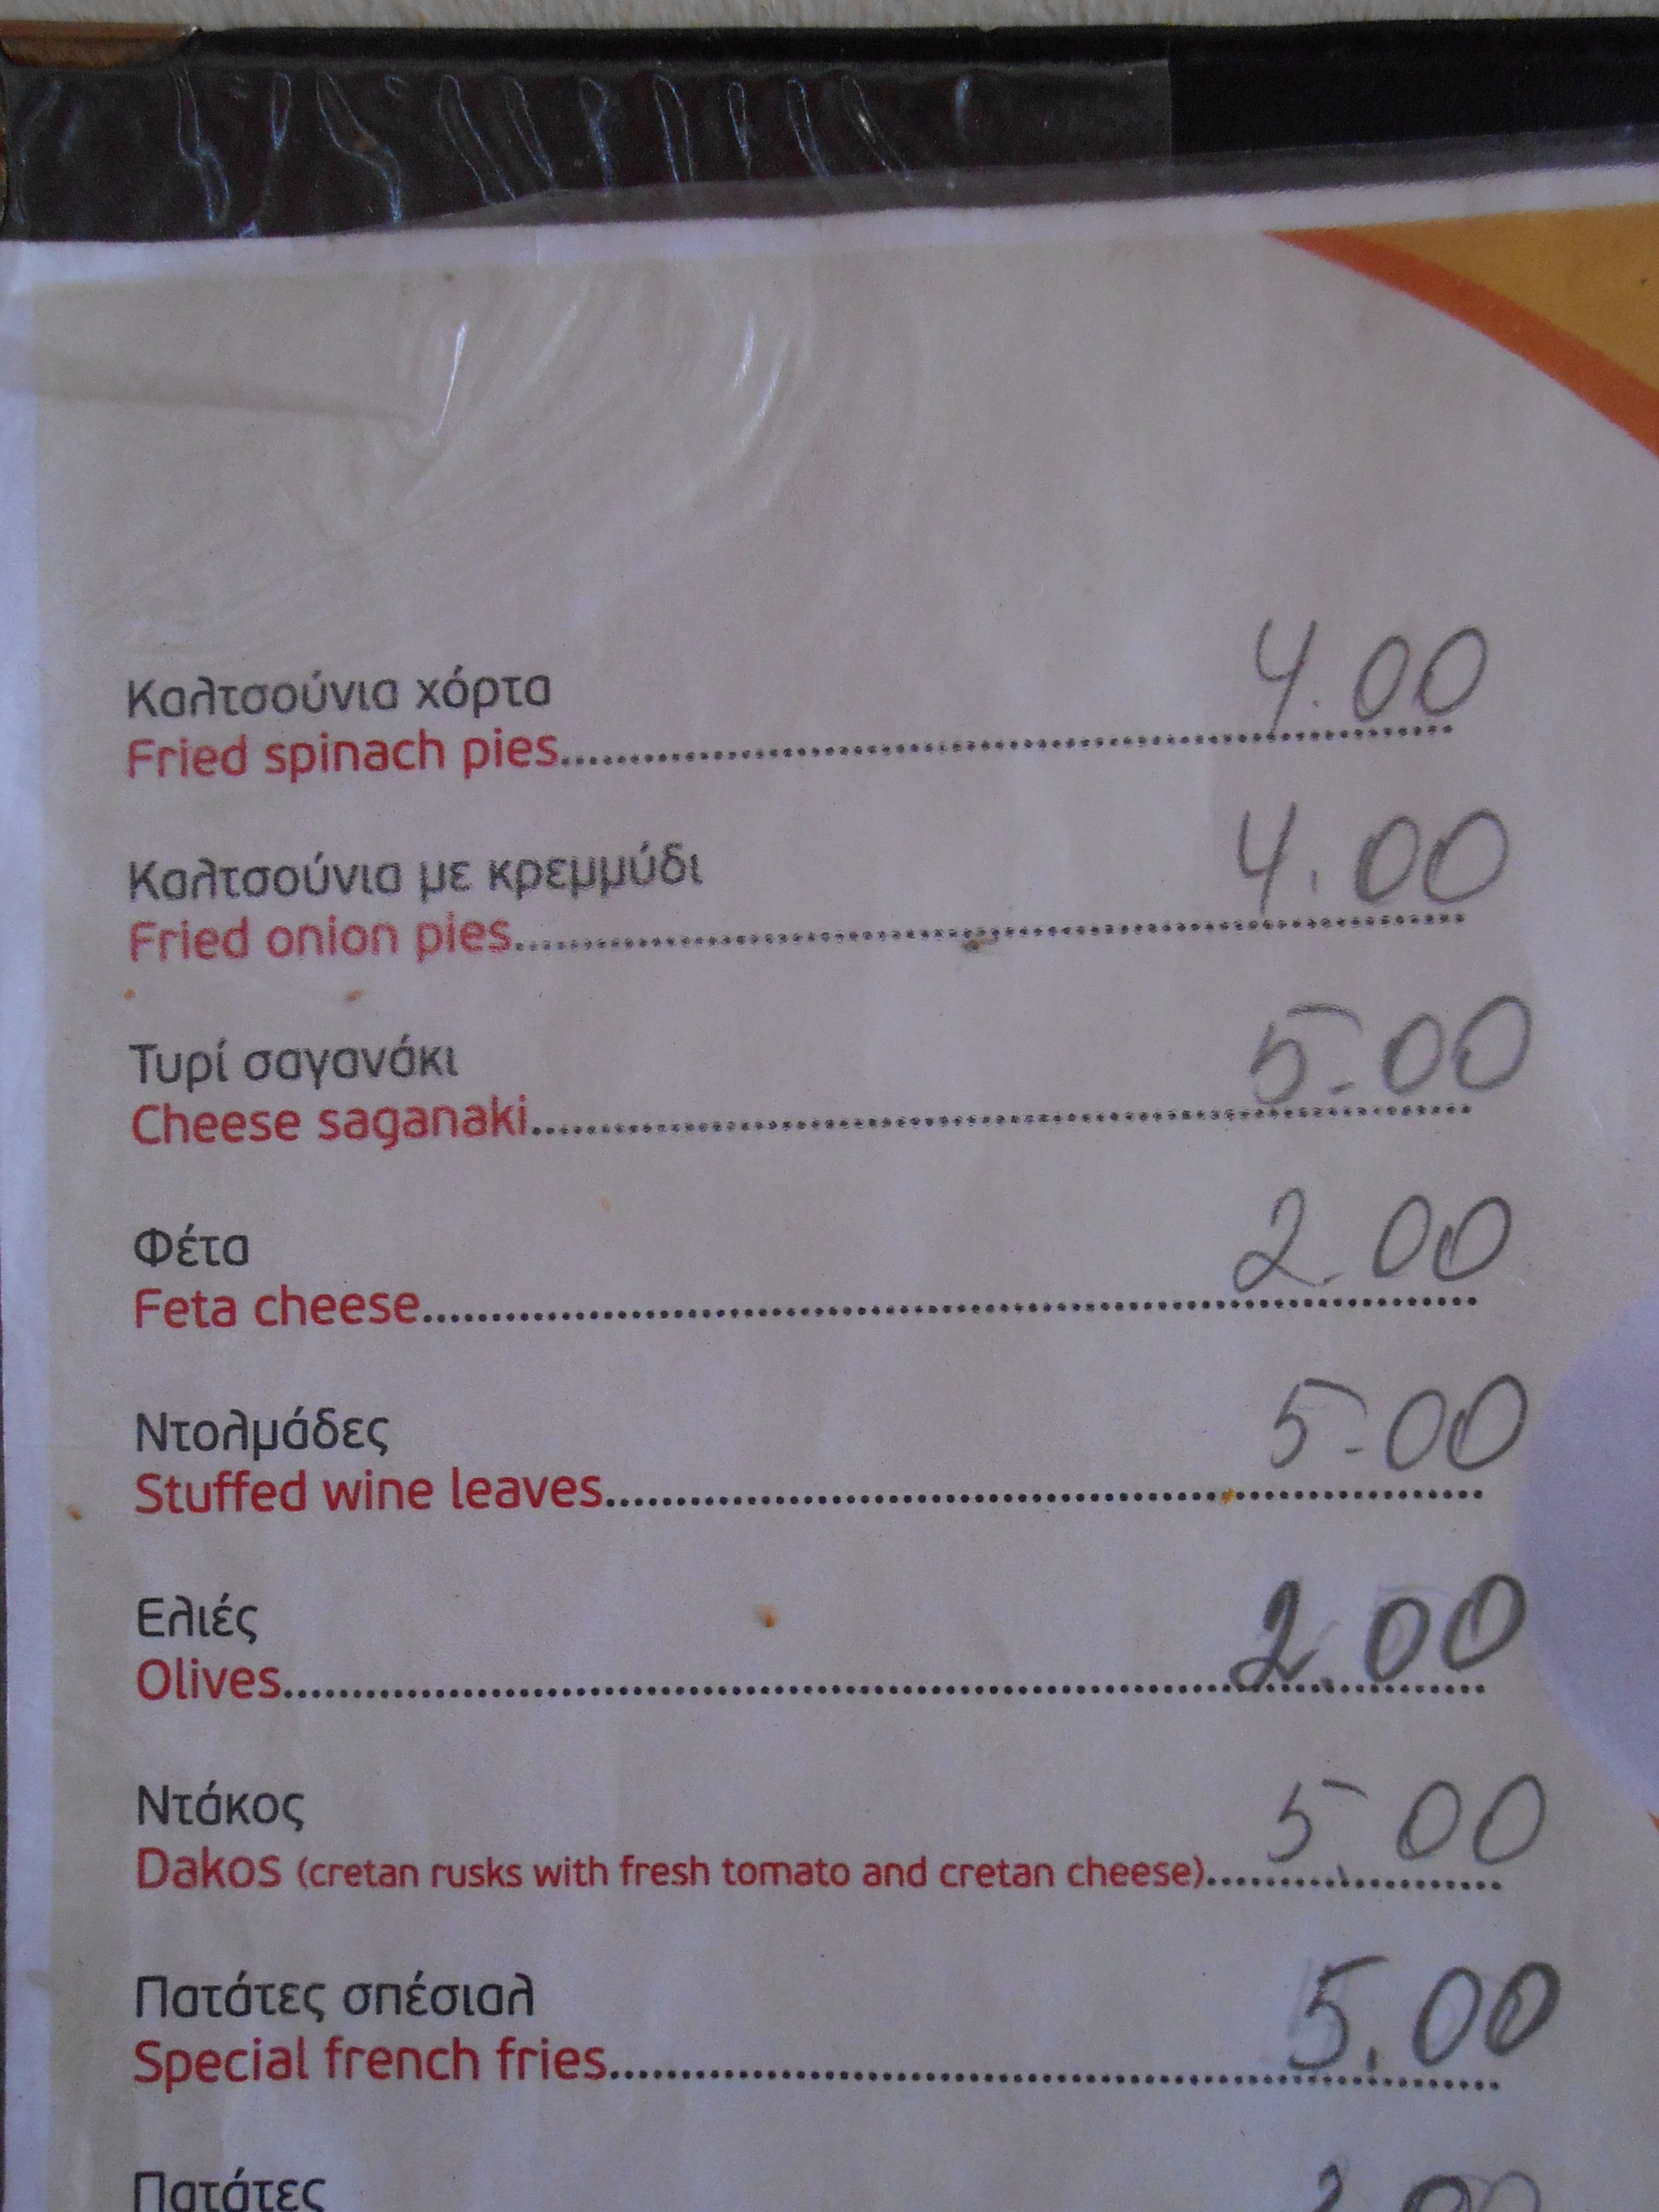 Καλτσούνια χόρτα
Fried spinach pies.......... 4.00
Καλτσούνια με κρεμμύδι
Fried onion pies.......... 4.00
Τυρί σαγανάκι
Cheese saganaki.......... 5.00
Φέτα
Feta cheese.......... 2.00
Ντολμάδες
Stuffed wine leaves.......... 5.00
Ελιές
Olives.......... 2.00
Ντάκος
Dakos (cretan rusks with fresh tomato and cretan cheese).......... 5.00
Πατάτες σπέσιαλ
Special french fries.......... 5.00
Πατάτες